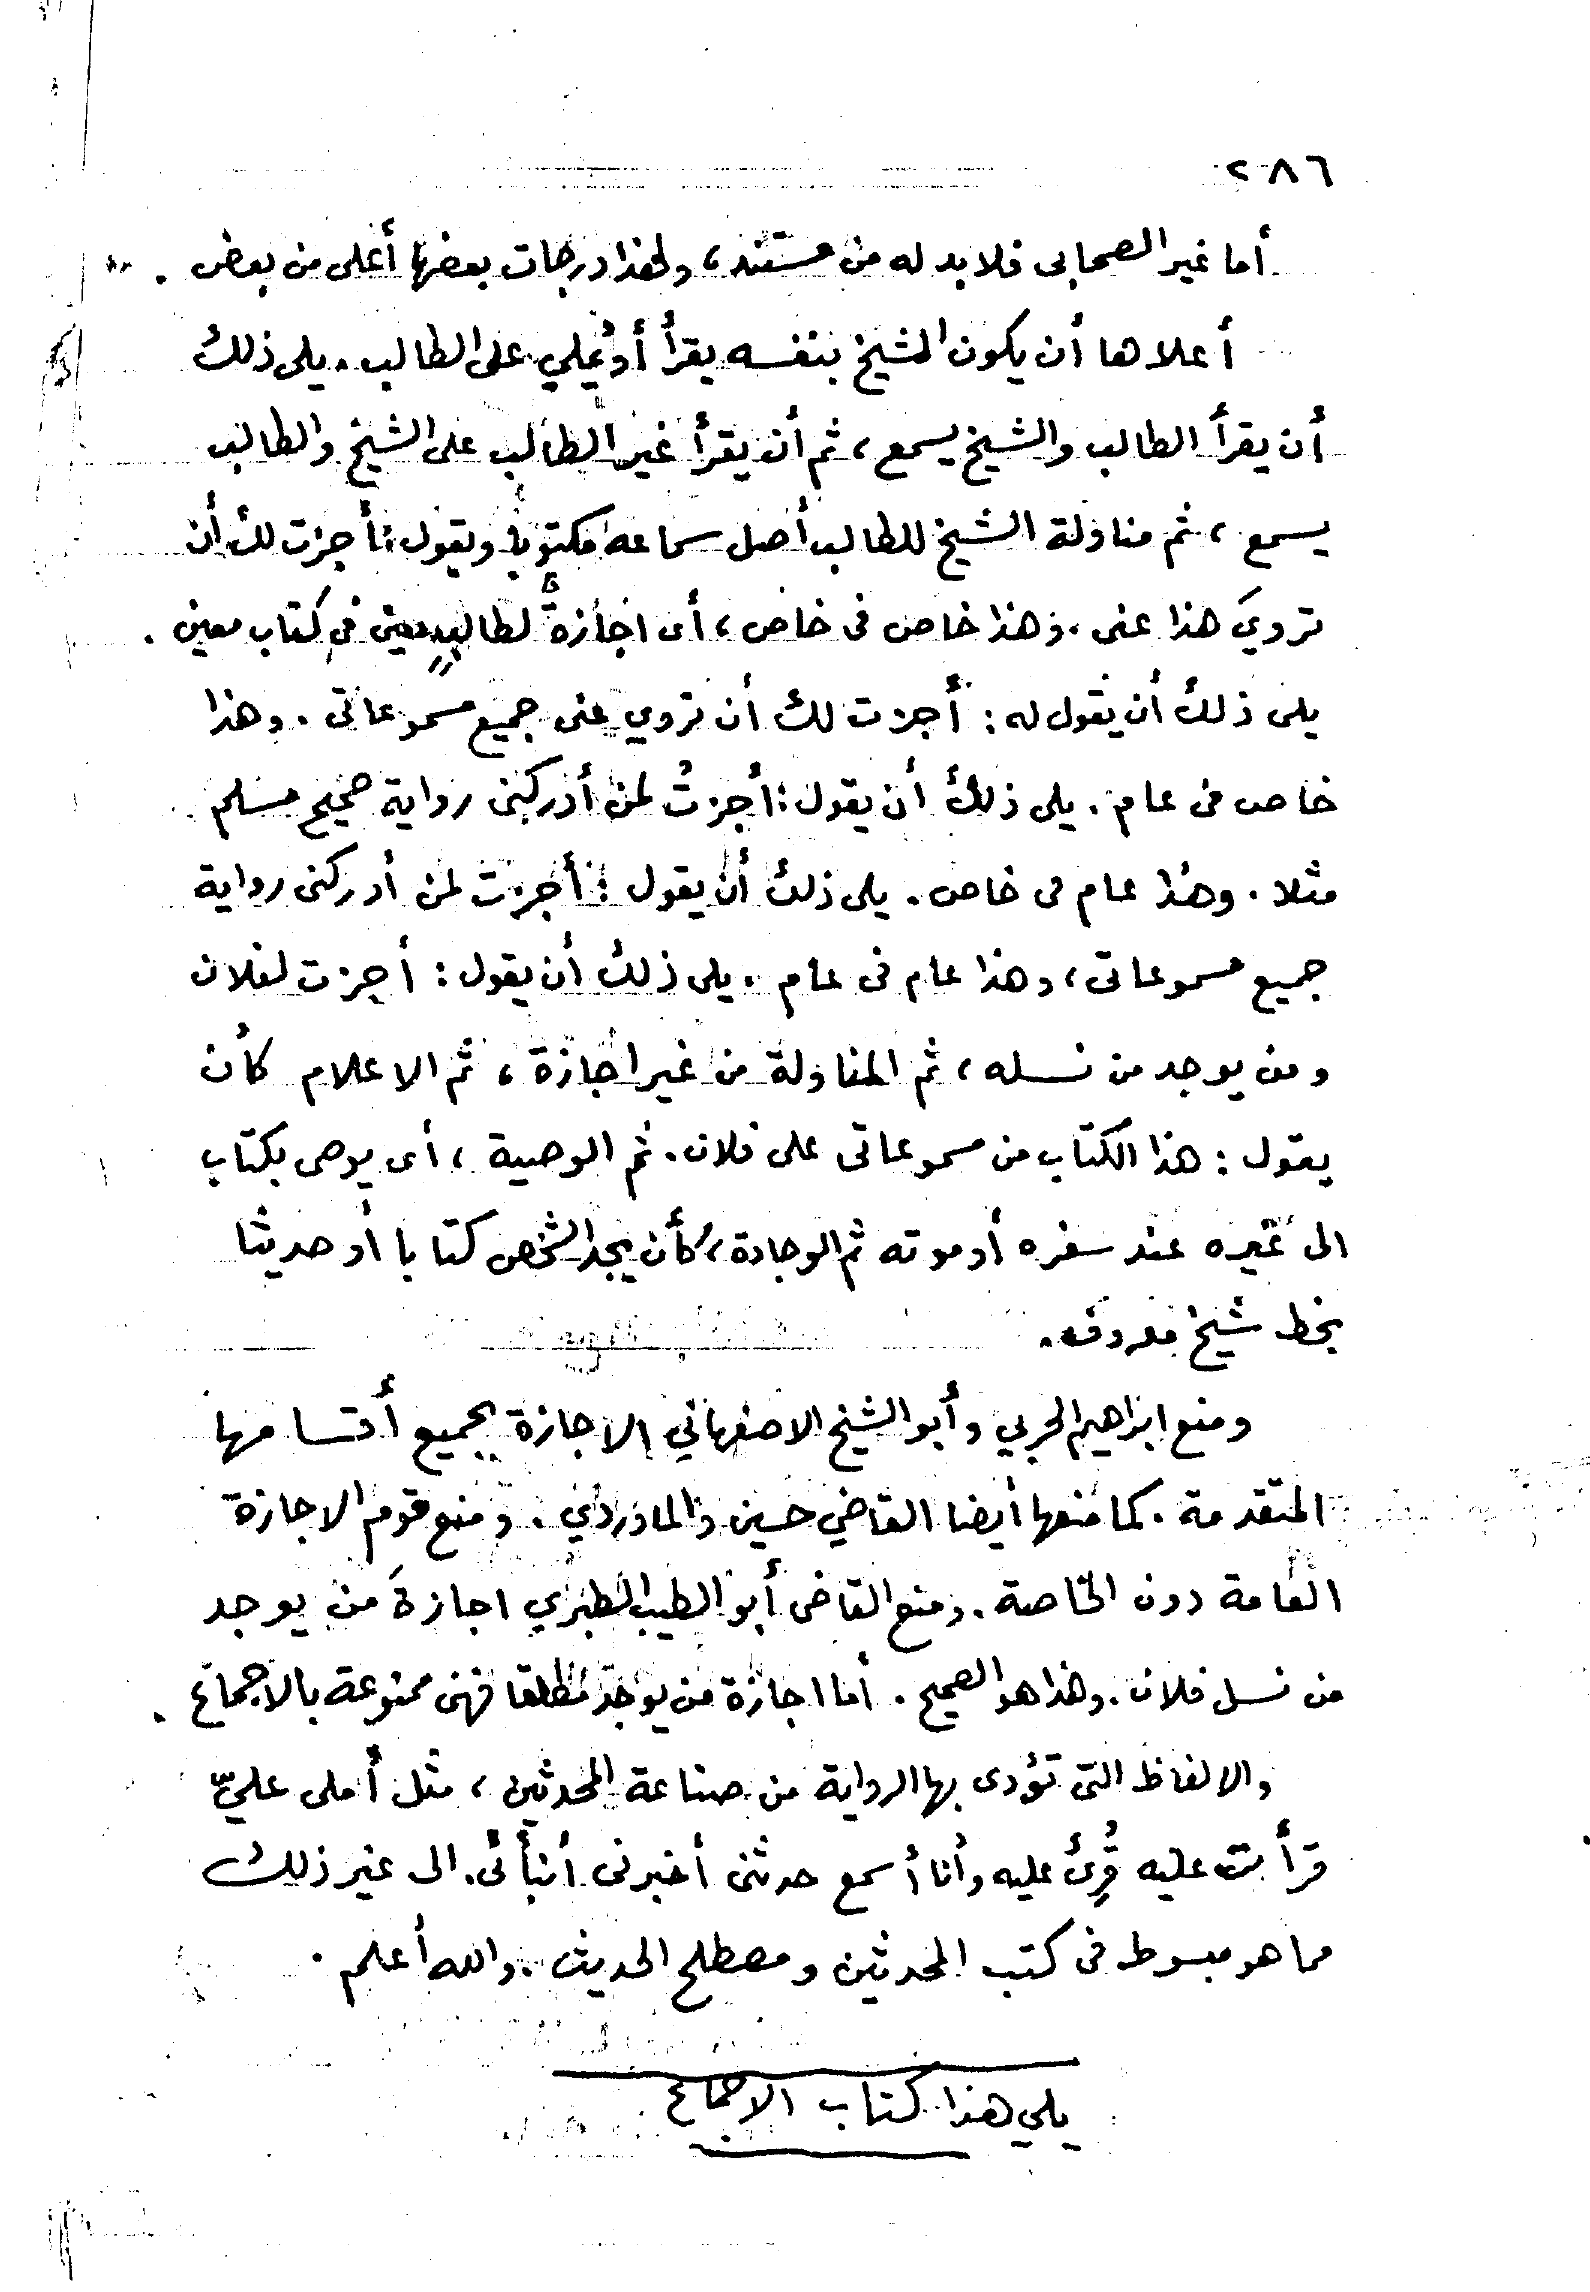 ٢٨٦
أما غير الصحابى فلا بد له من مستند، ولهذا درجات بعضها أعلى من بعض .
أعلاها أن يكون الشيخ بنفسه يقرأ أو يُملي على الطالب. يلى ذلك
أن يقرأ الطالب والشيخ يسمع، ثم أن يقرأ غير الطالب على الشيخ والطالب
يسمع، ثم مناولة الشيخ للطالب أصل سماعه مكتوبا ويقول: أجزت لك أن
تروي هذا عنى. وهذا خاص فى خاص، أى اجازة لطالب معين فى كتاب معين .
يلى ذلك أن يقول له: أجزت لك أن تروي عنى جميع مسموعاتى. وهذا
خاص فى عام. يلى ذلك أن يقول: أجزتُ لمن أدركنى رواية صحيح مسلم
مثلا. وهذا عام فى خاص. يلى ذلك أن يقول: أجزت لمن أدركنى رواية
جميع مسموعاتى، وهذا عام فى عام. يلى ذلك أن يقول: أجزت لفلان
ومن يوجد من نسله، ثم المناولة من غير اجازة، ثم الاعلام كأن
يقول: هذا الكتاب من مسموعاتى على فلان. ثم الوصية، أى يوصى بكتاب
الى غيره عند سفره أو موته ثم الوجادة، كأن يجد الشخص كتابا أو حديثا
بخط شيخ معروف.
ومنع ابراهيم الحربي وأبو الشيخ الاصفهاني الاجازة بجميع أقسامها
المتقدمة. كما منعها أيضا القاضي حسين والماوردي. ومنع قوم الاجازة
العامة دون الخاصة. ومنع القاضى أبو الطيب الطبري اجازةَ من يوجد
من نسل فلان. وهذا هو الصحيح. أما اجازة من يوجد مطلقا فهى ممنوعة بالاجماع .
والالفاظ التى تؤدى بها الرواية من صناعة المحدثين، مثل أملى عليّ
قرأت عليه قُرِئ عليه وأنا أسمع حدثنى أخبرنى أنبأنى. الى غير ذلك
مما هو مبسوط فى كتب المحدثين ومصطلح الحديث. والله أعلم .
يلي هذا كتاب الاجماع